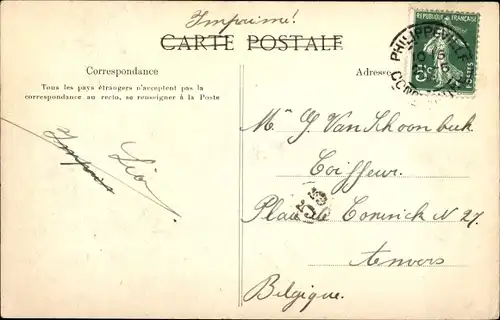 Imprimé!
CARTE POSTALE
REPUBLIQUE FRANÇAISE
PHILIPPEVILLE
5c
Correspondance
Adresse
Tous les pays étrangers n'acceptent pas la
correspondance au recto, se renseigner à la Poste
Léon
Mr J. Van Schoonbeek
Coiffeur.
Place de Coninck N 27.
Anvers
Belgique.